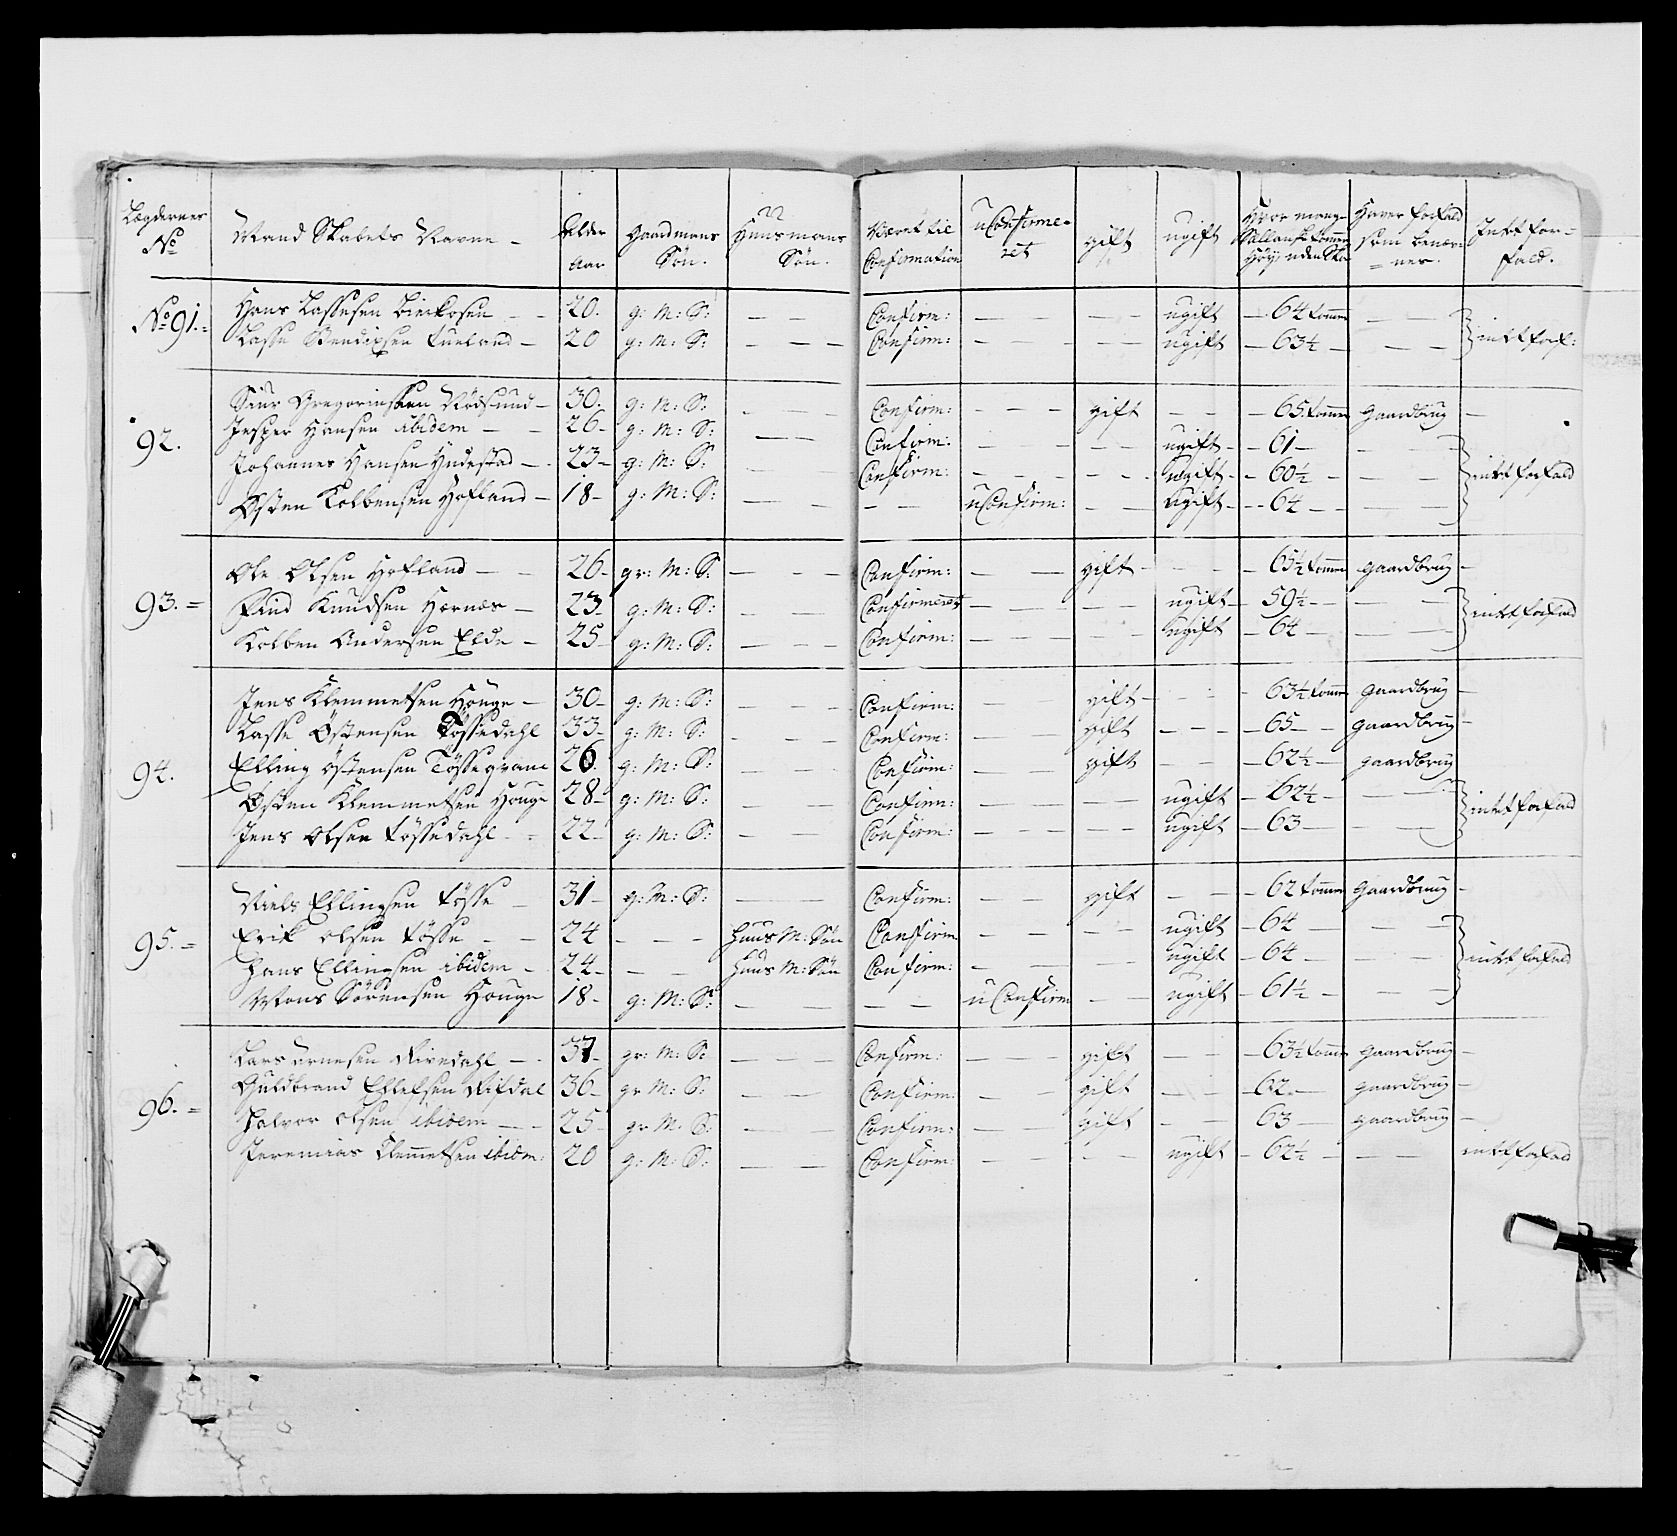 Lægdernes No | Mand Skabets Navne | Alder Aar | Gaardmans Søn. | Huusmans Søn. | Været til Confirmation | uConfirmeret | gift | ugift | Hvor mange Sællandske tommer Høy uden Skoe | Haver forfald som benævnes. | Intet forfald.
No 91. | Hans Lassesen Birckosen | 20. | g: M: S: | — | Confirm: | — | — | ugift | 64 tommer | — | intet forf:
Lasse Bendixsen Tueland | 20 | g: M: S: | — | Confirm: | — | — | ugift | 63½ | —
92. | Siur Gregoriussen Rödsund | 30. | g: M: S: | — | Confirm: | — | gift | — | 65. tommer | gaardbrug | —
Jesper Hansen ibidem | 26 | g: M: S: | — | Confirm: | — | — | ugift | 61 | — | intet forfald
Johannes Hansen Yndestad | 23 | g: M: S: | — | Confirm: | — | — | ugift | 60½ | —
Østen Kolbensen Hofland | 18 | g: M: S: | — | — | uConfirm: | — | ugift | 64 | —
93. | Ole Olsen Hofland | 26 | gr: M: S: | — | Confirm: | — | gift | — | 65½ tommer | gaardbrug | —
Find Knudsen Hornæs | 23 | g: M: S: | — | Confirmeret | — | — | ugift | 59½ | — | intet forfald
Kolben Andersen Elde | 25 | g: M: S: | — | Confirm: | — | — | ugift | 64 | —
94. | Jens Klemmetsen Houge | 30 | g: M: S: | — | Confirm: | — | gift | — | 63½ tommer | gaardbrug | —
Lasse Østensen Tössedahl | 33 | g: M: S: | — | Confirm: | — | gift | — | 65 | gaardbrug | —
Elling Østensen Tösseqvam | 26. | g: M: S: | — | Confirm: | — | gift | — | 62½ | gaardbrug
Østen Klemmetsen Houge | 28 | g: M: S: | — | Confirm: | — | — | ugift | 62½ | — | intet forfald
Jens Olsen Tössedahl | 22 | g: M: S: | — | Confirm: | — | — | ugift | 63 | —
95. | Niels Ellingsen Tösse | 31 | g: M: S: | — | Confirm: | — | gift | — | 62 tommer | gaardbrug | —
Erik Olsen Tösse | 24 | — | Huus M: Søn | Confirm | — | — | ugift | 64 | — | intet forfald
Hans Ellingsen ibidem | 24 | — | Huus M: Søn | Confirm: | — | — | ugift | 64 | —
Mons Sörensen Houge | 18 | g: M: S: | — | — | uConfirm | — | ugift | 61½ | —
96. | Lars Arnesen Rivedahl | 37 | gr: M: S: | — | Confirm: | — | gift | — | 63½ tommer | gaardbrug | —
Guldbrand Ellefsen Rifdal | 36 | gr M: S: | — | Confirm: | — | gift | — | 62 | gaardbrug | —
Halvor Olsen ibidem | 25 | gr M: S: | — | Confirm: | — | gift | — | 63 | gaardbrug | —
Jeremias Clemmetsen ibidm: | 20 | g: M: S: | — | Confirm: | — | — | ugift | 62½ | — | intet forfald